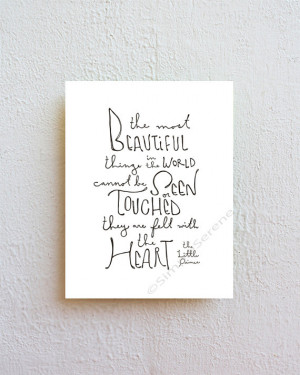 the most
BEAUTIFUL
things in the WORLD
cannot be SEEN
or
TOUCHED
they are felt with
the
HEART
the
Little
Prince
©SimpleSerene